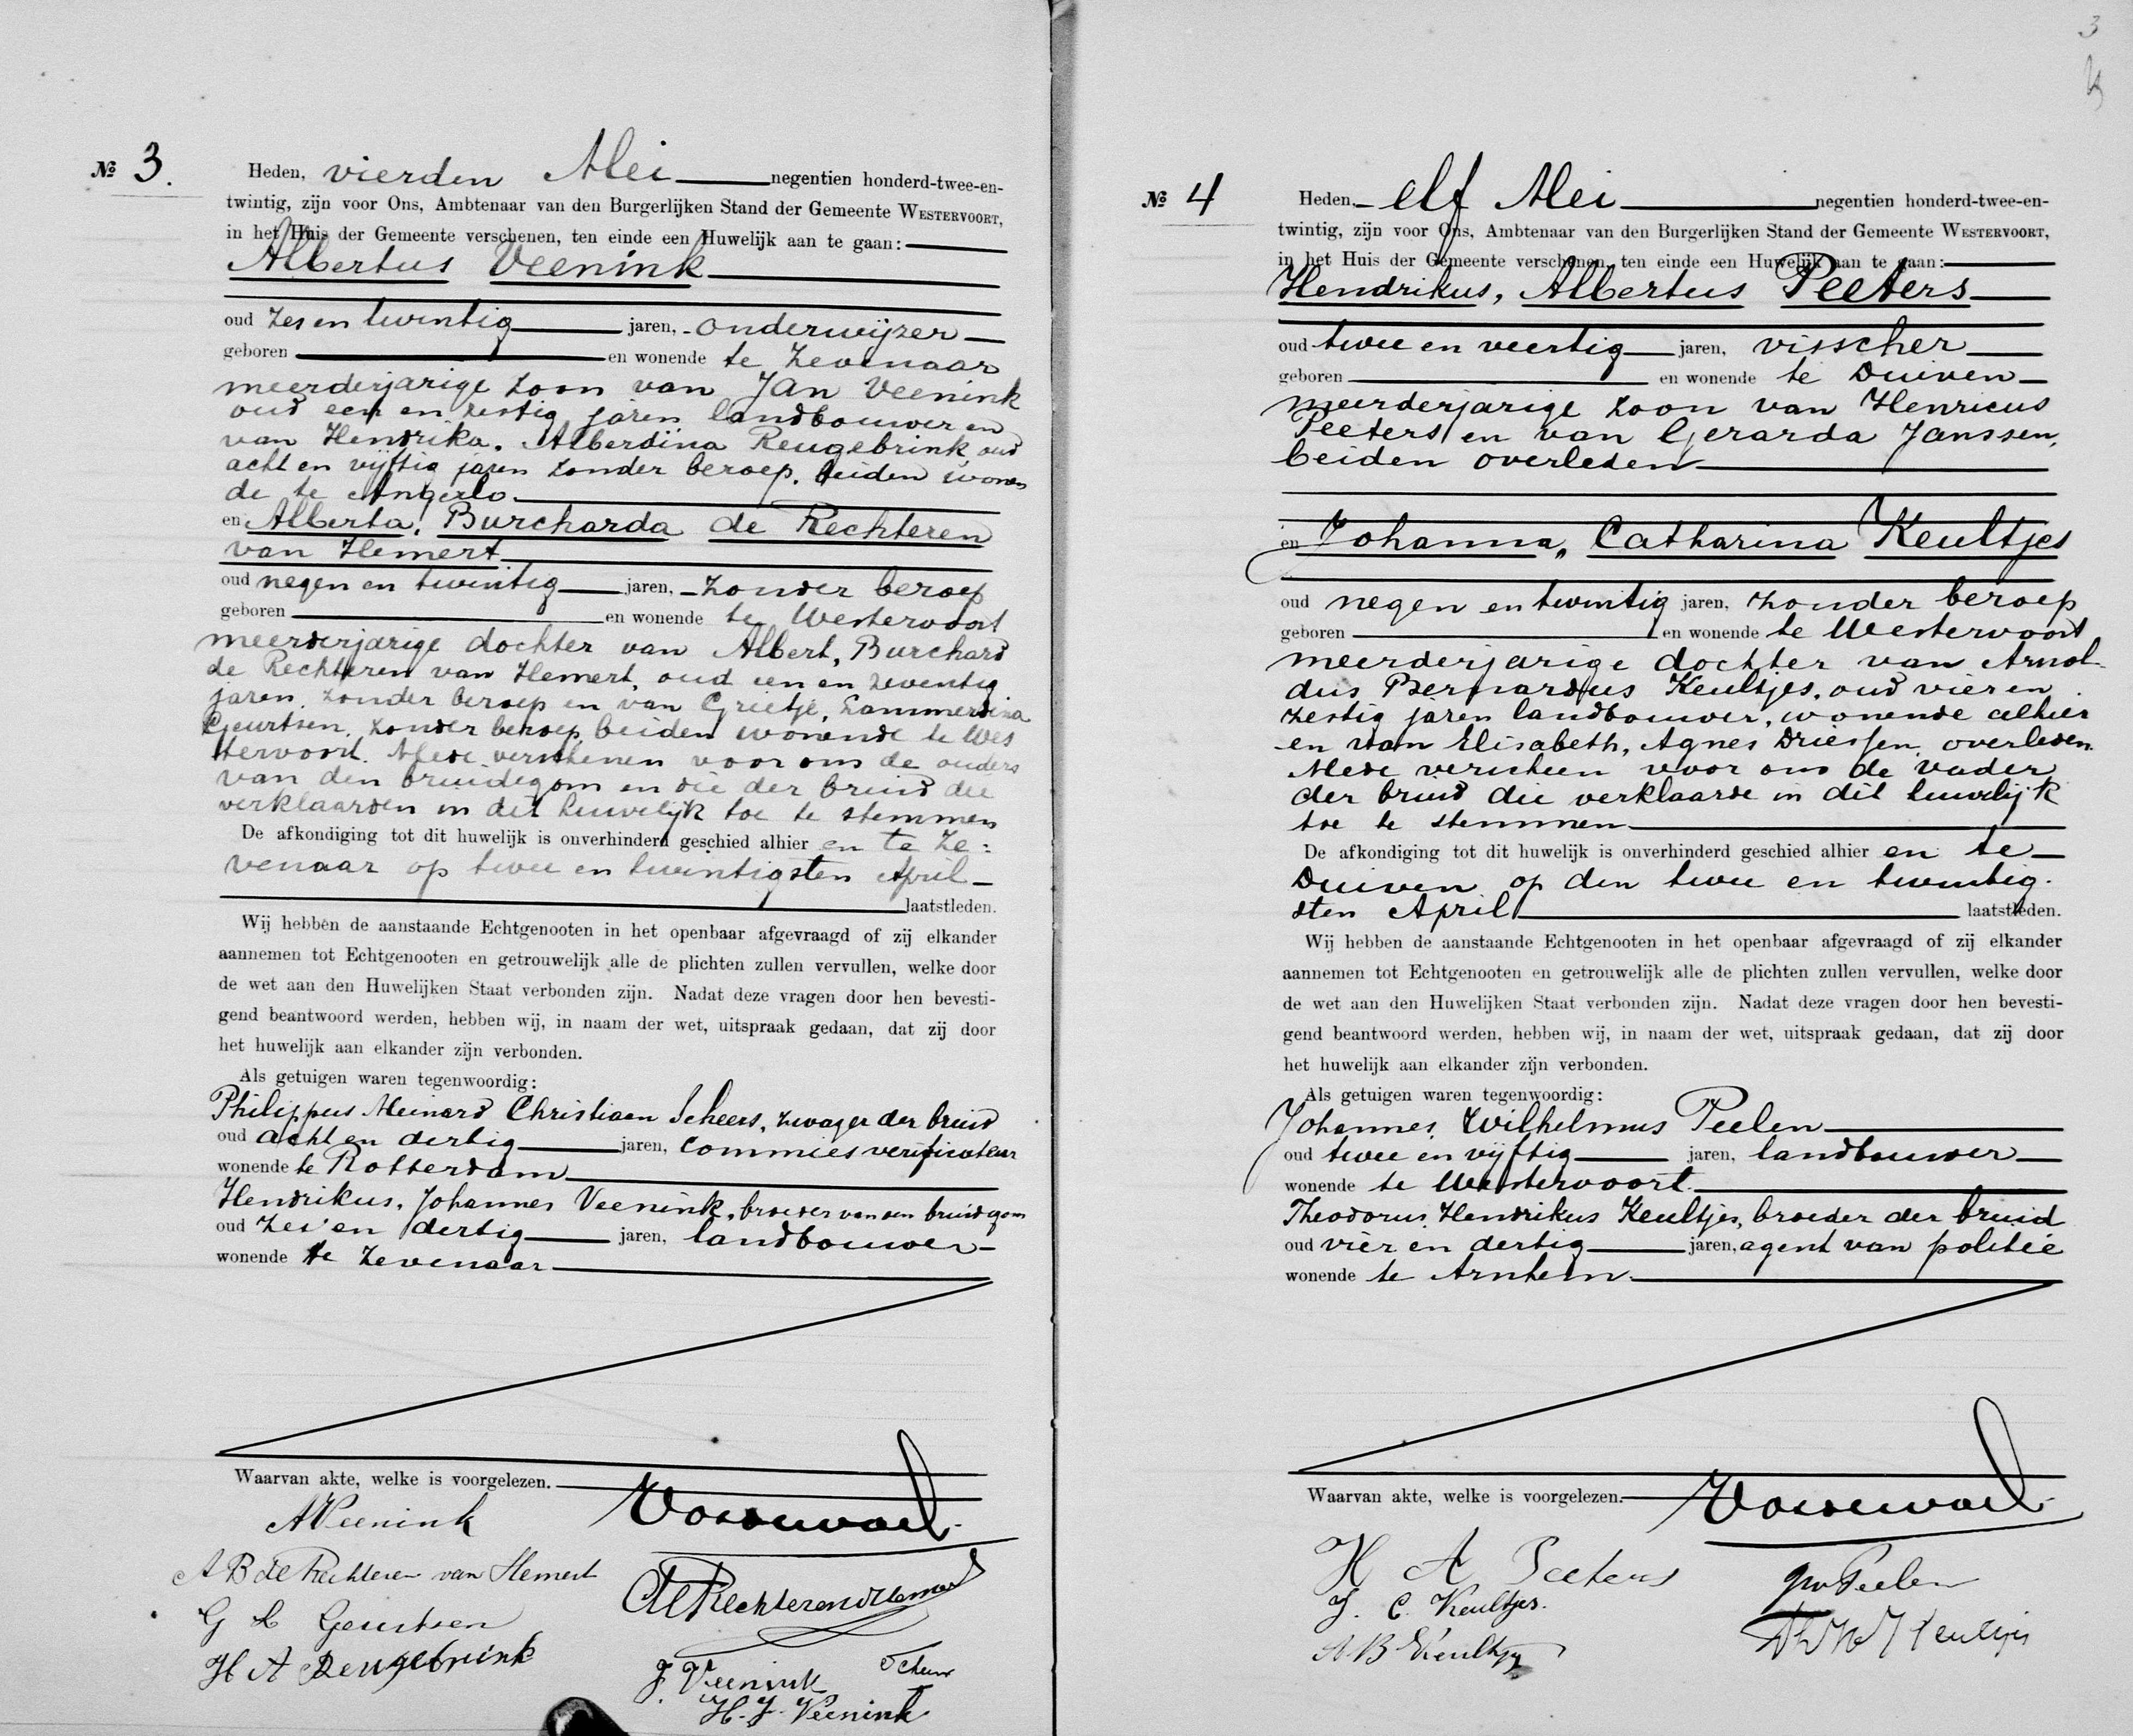 № 3.
Heden, vierden Mei negentien honderd-twee-en-
twintig, zijn voor Ons, Ambtenaar van den Burgerlijken Stand der Gemeente WESTERVOORT,
in het Huis der Gemeente verschenen, ten einde een Huwelijk aan te gaan:
Albertus Veenink
oud zes en twintig jaren, onderwijzer
geboren en wonende te Zevenaar
meerderjarige zoon van Jan Veenink
oud een en zestig jaren landbouwer en
van Hendrika, Alberdina Reugebrink oud
acht en vijftig jaren zonder beroep, beiden wonen
de te Angerlo
en Alberta, Burcharda de Rechteren
van Hemert
oud negen en twintig jaren, zonder beroep
geboren en wonende te Westervoort
meerderjarige dochter van Albert, Burchard
de Rechteren van Hemert, oud een en zeventig
jaren, zonder beroep en van Grietje, Lammerdina
Geurtsen, zonder beroep, beiden wonende te Wes
tervoort. Mede verschenen voor ons de ouders
van den bruidegom en die der bruid die
verklaarden in dit huwelijk toe te stemmen
De afkondiging tot dit huwelijk is onverhinderd geschied alhier en te Ze:
venaar op twee en twintigsten April
laatstleden.
Wij hebben de aanstaande Echtgenooten in het openbaar afgevraagd of zij elkander
aannemen tot Echtgenooten en getrouwelijk alle de plichten zullen vervullen, welke door
de wet aan den Huwelijken Staat verbonden zijn. Nadat deze vragen door hen bevesti-
gend beantwoord werden, hebben wij, in naam der wet, uitspraak gedaan, dat zij door
het huwelijk aan elkander zijn verbonden.
Als getuigen waren tegenwoordig:
Philippus Meinard Christiaan Scheers, zwager der bruid
oud acht en dertig jaren, commies verificateur
wonende te Rotterdam
Hendrikus, Johannes Veenink, broeder van den bruidegom
oud zes en dertig jaren, landbouwer
wonende te Zevenaar
Waarvan akte, welke is voorgelezen.
A Veenink
A B de Rechteren van Hemert
G L Geurtsen
H A Reugebrink
J. Veenink
H. J. Veenink
3
№ 4
Heden, elf Mei negentien honderd-twee-en-
twintig, zijn voor Ons, Ambtenaar van den Burgerlijken Stand der Gemeente WESTERVOORT,
in het Huis der Gemeente verschenen, ten einde een Huwelijk aan te gaan:
Hendrikus, Albertus Peeters
oud twee en veertig jaren, visscher
geboren en wonende te Duiven
meerderjarige zoon van Henricus
Peeters en van Gerarda Janssen,
beiden overleden
en Johanna, Catharina Keultjes
oud negen en twintig jaren, zonder beroep
geboren en wonende te Westervoort
meerderjarige dochter van Arnol-
dus Bernardus Keultjes, oud vier en
zestig jaren landbouwer, wonende alhier
en van Elisabeth, Agnes Driessen, overleden.
Mede verscheen voor ons de vader
der bruid die verklaarde in dit huwelijk
toe te stemmen
De afkondiging tot dit huwelijk is onverhinderd geschied alhier en te
Duiven op den twee en twintig-
sten April laatstleden.
Wij hebben de aanstaande Echtgenooten in het openbaar afgevraagd of zij elkander
aannemen tot Echtgenooten en getrouwelijk alle de plichten zullen vervullen, welke door
de wet aan den Huwelijken Staat verbonden zijn. Nadat deze vragen door hen bevesti-
gend beantwoord werden, hebben wij, in naam der wet, uitspraak gedaan, dat zij door
het huwelijk aan elkander zijn verbonden.
Als getuigen waren tegenwoordig:
Johannes, Wilhelmus Peelen
oud twee en vijftig jaren, landbouwer
wonende te Westervoort
Theodorus, Hendrikus Keultjes, broeder der bruid
oud vier en dertig jaren, agent van politie
wonende te Arnhem
Waarvan akte, welke is voorgelezen.
H A Peeters
J. C. Keultjes.
A B Keultjes
JW Peelen
Th H Keultjes